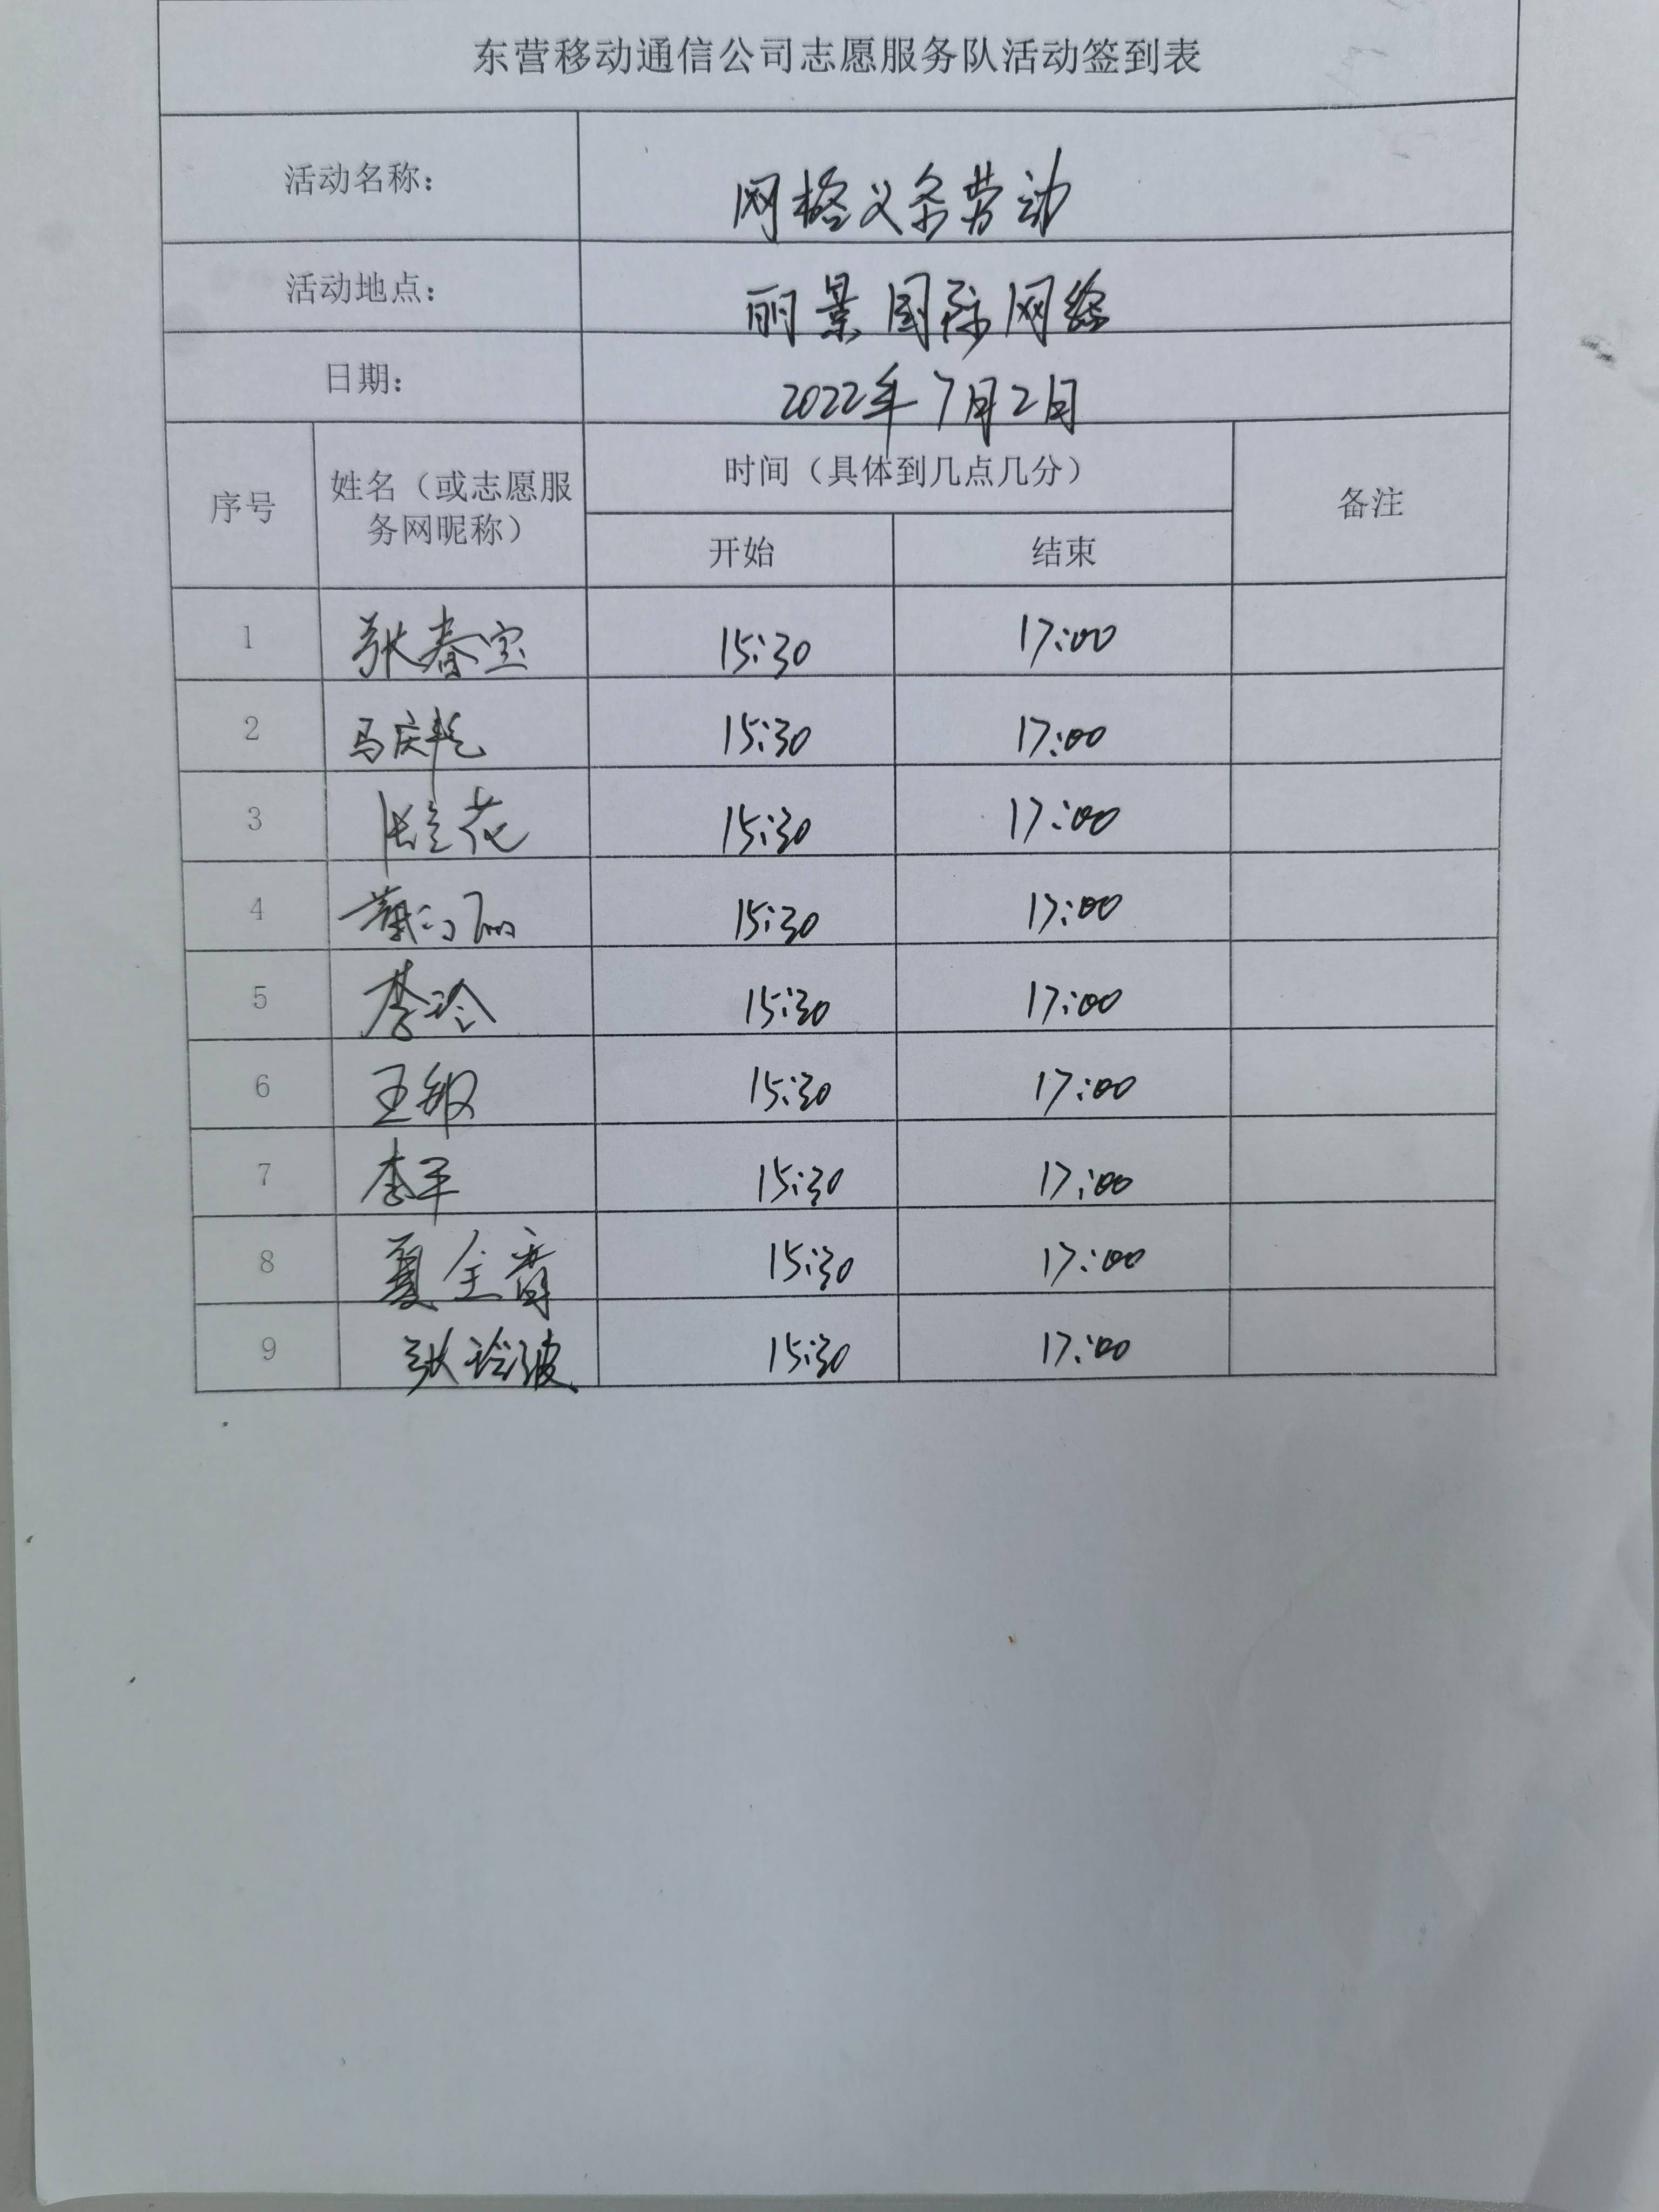 东营移动通信公司志愿服务队活动签到表
活动名称：
网格义务劳动
活动地点：
丽景国际网络
日期：
2022年7月2日
序号
姓名（或志愿服
务网昵称）
时间（具体到几点几分）
备注
开始
结束
1 张春宝 15:30 17:00
2 马庆艳 15:30 17:00
3 花 15:30 17:00
4 15:30 17:00
5 李玲 15:30 17:00
6 王敏 15:30 17:00
7 李平 15:30 17:00
8 夏全 15:30 17:00
9 张玲波 15:30 17:00